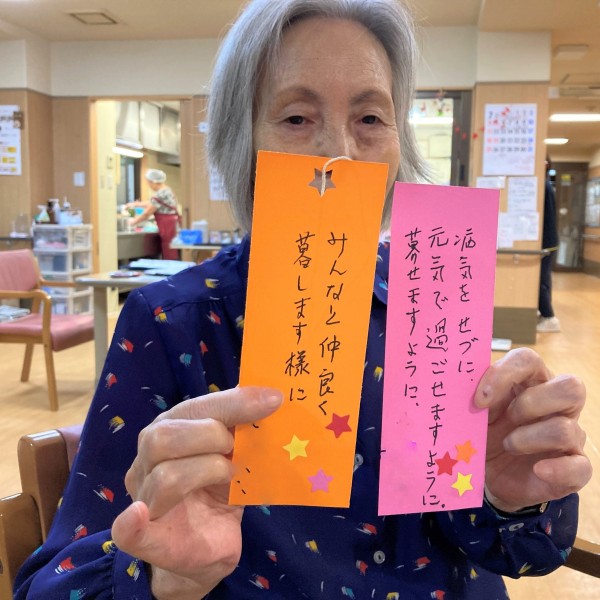 みんなと仲良く
暮します様に
病気をせづに、
元気で過ごせますように。
暮せますように、